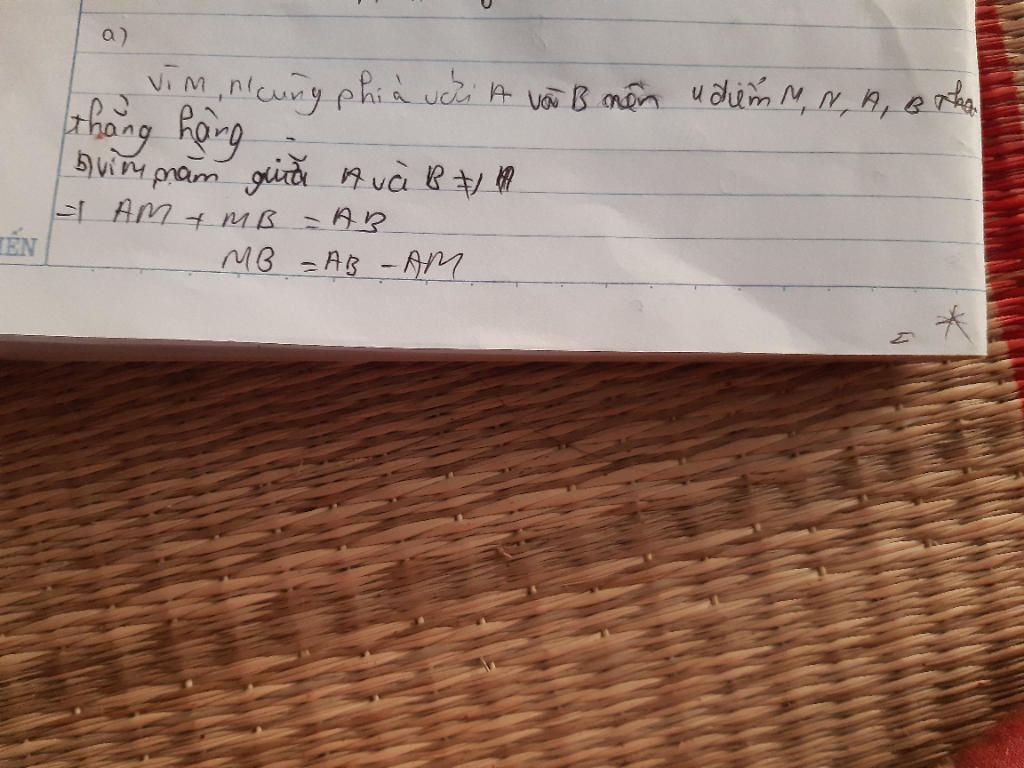 a)
Vì M, N cùng phía với A và B nên 4 điểm M, N, A, B
thẳng hàng
b) Vì M nằm giữa A và B
=) AM + MB = AB
MB = AB - AM
ẾN